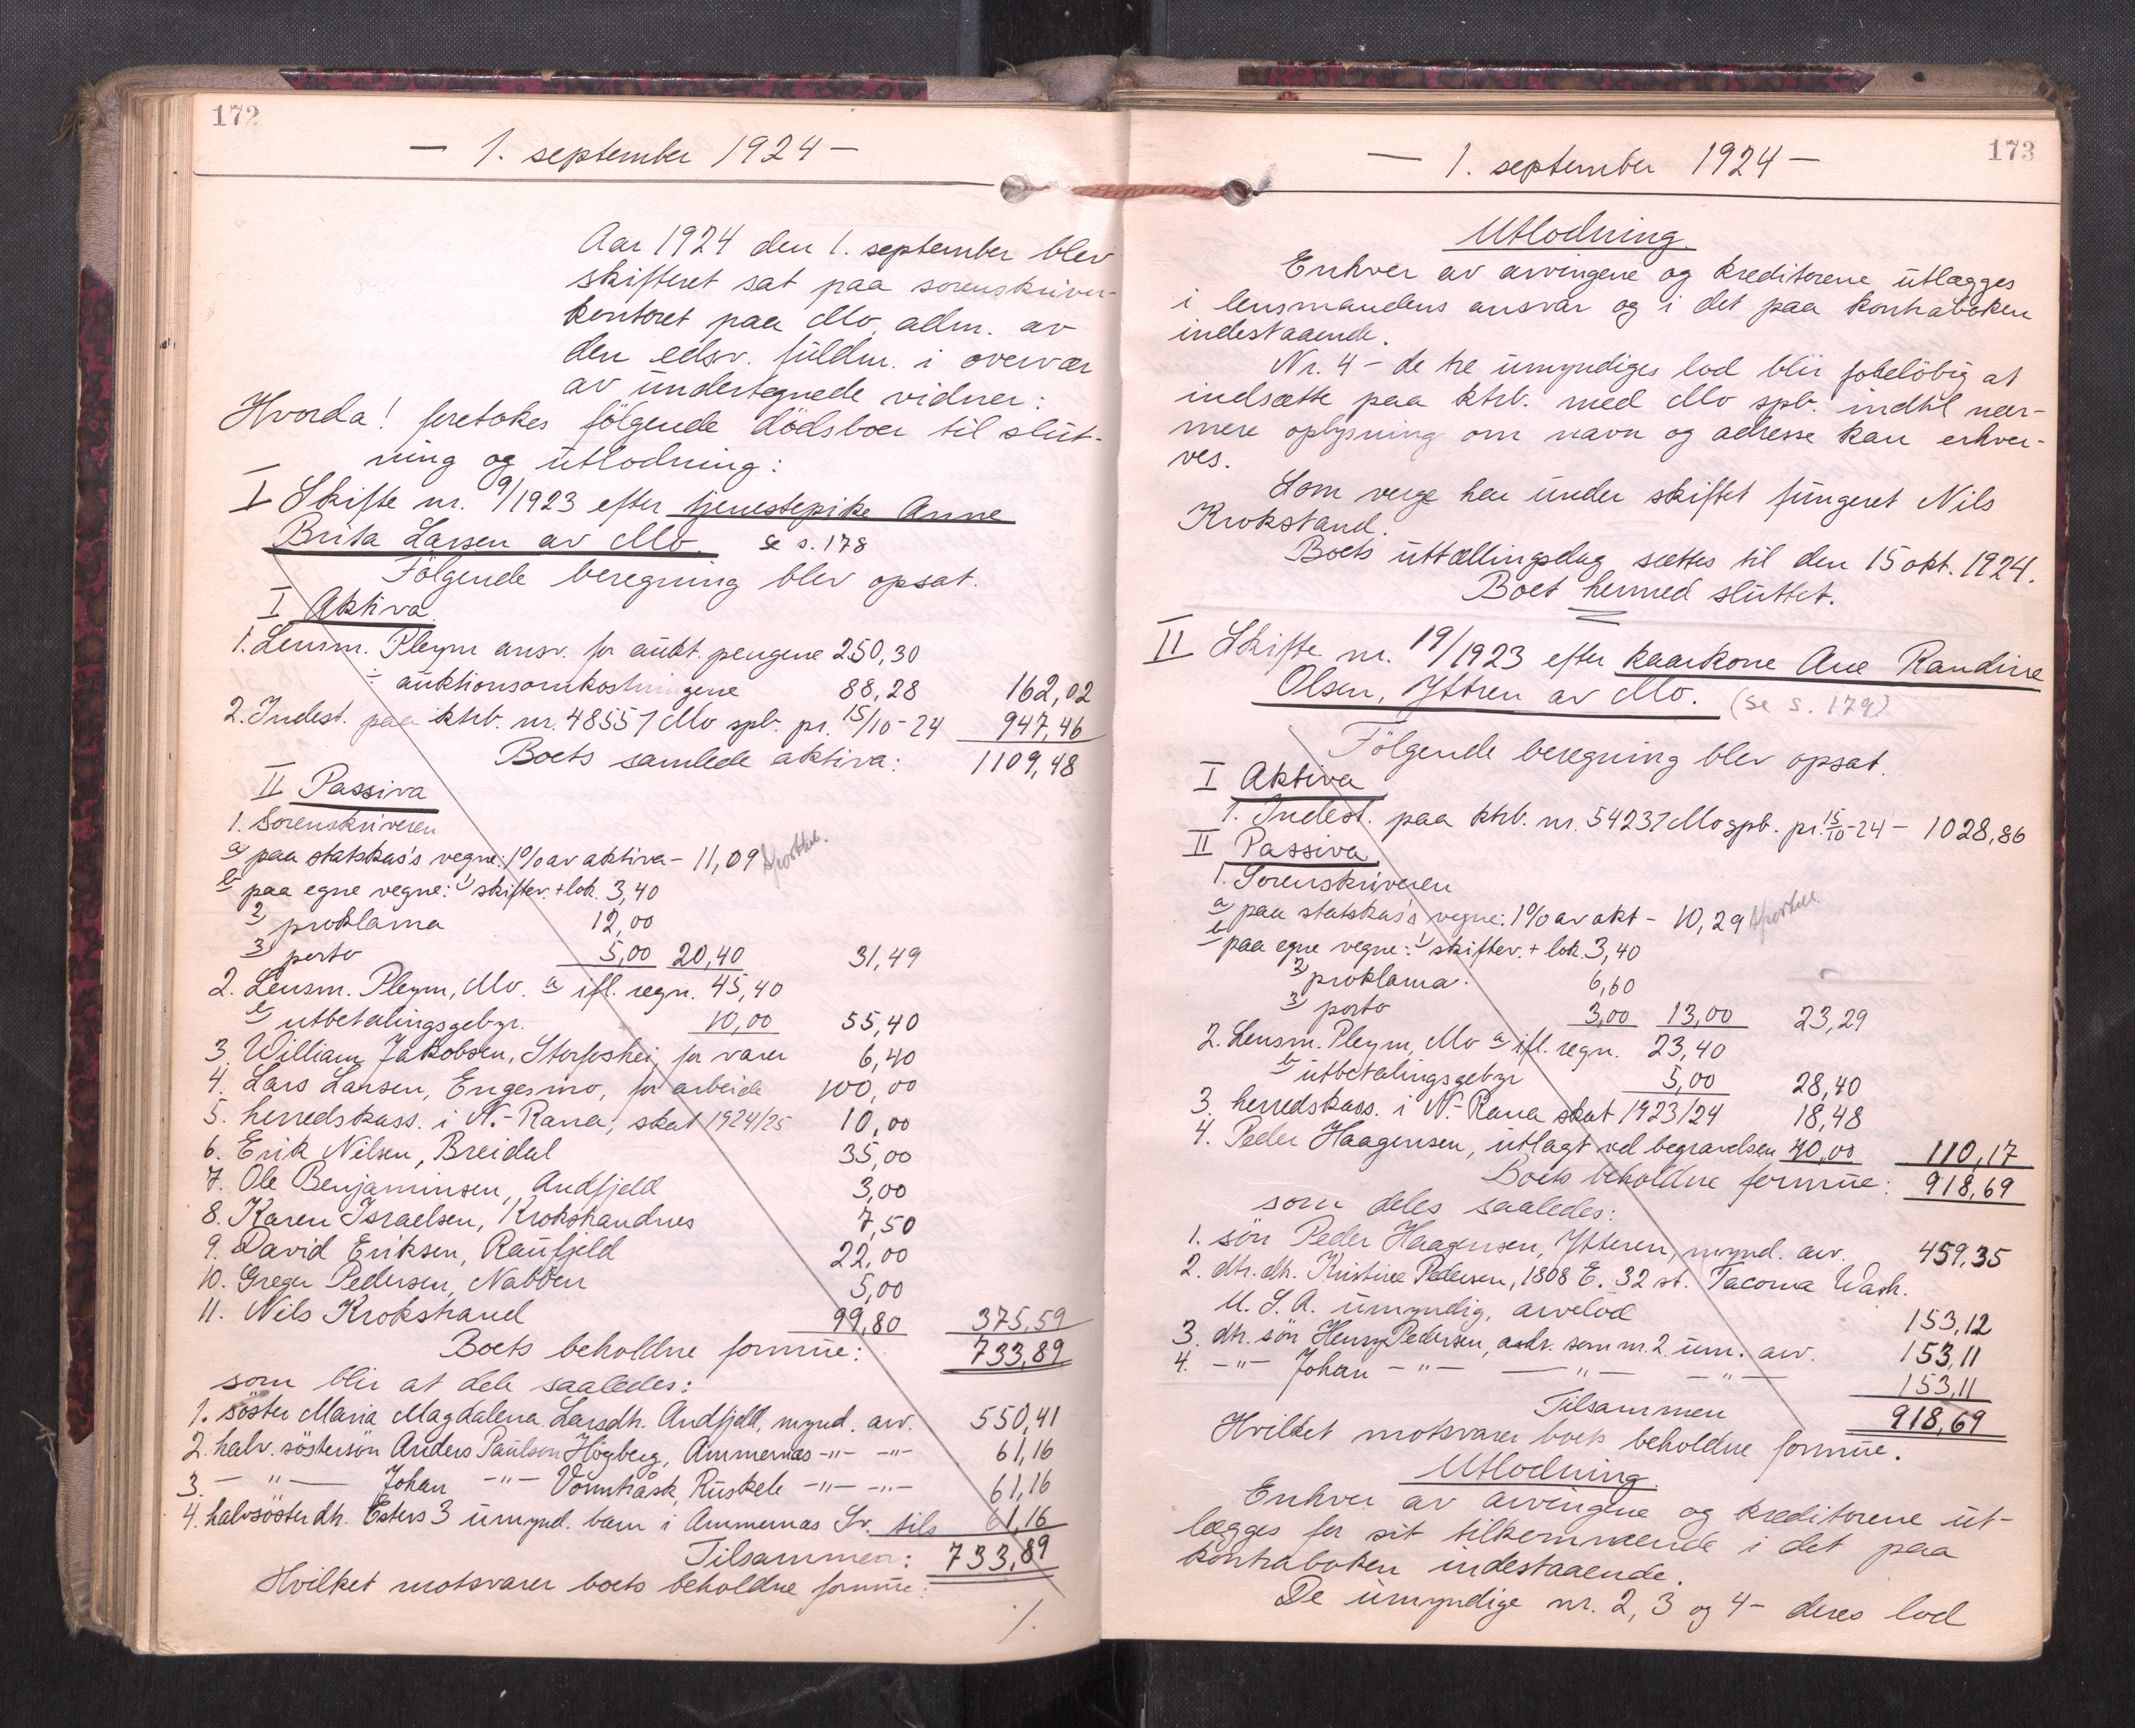 172
— 1. september 1924 —
Aar 1924 den 1. september blev
skifteret sat paa sorenskriver-
kontoret paa Mo, adm. av
den edsv. fuldm. i overvær
av undertegnede vidner:
Hvorda! foretokes følgende dødsboer til slut-
ning og utlodning:
I Skifte nr. 9/1923 efter tjenestepike Anne
Brita Larsen av Mo. se s. 178
Følgende beregning blev opsat.
I Aktiva.
1. Lensm. Pleym ansv. for aukt. pengene 250,30
÷ auktionsomkostningene 88,28 162,02
2. Indest. paa ktrb. nr. 48557 Mo spb. pr. 15/10-24 947,46
Boets samlede aktiva: 1109,48
II Passiva
1. Sorenskriveren
a) paa statskas's vegne: 1% av aktiva – 11,09
b) paa egne vegne: 1) skiftev. + lok. 3,40
2) proklama 12,00
3) porto 5,00 20,40 31,49
2. Lensm. Pleym, Mo. a) ifl. regn. 45,40
b) utbetalingsgebyr. 10,00 55,40
3. William Jakobsen, Storforshei, for varer 6,40
4. Lars Larsen, Engesmo, for arbeide 100,00
5. herredskass. i N.-Rana, skat 1924/25 10,00
6. Erik Nilsen, Breidal 35,00
7. Ole Benjaminsen, Andfjeld 3,00
8. Karen Israelsen, Krokstrandnes 7,50
9. David Eriksen, Raufjeld 22,00
10. Greger Pedersen, Nabben 5,00
11. Nils Krokstrand 99,80 375,59
Boets beholdne formue: 733,89
som blir at dele saaledes:
1. søster Maria Magdalena Larsdtr. Andfjeld, mynd. arv. 550,41
2. halv. søstersøn Anders Paulsen Høgberg, Ammernæs -"- -"- 61,16
3. — " — Johan -"- Vormtråsk, Ruskele -"- -"- 61,16
4. halvsøster dtr. Esters 3 umynd. barn i Ammernæs Sv. tils 61,16
Tilsammen: 733,89
Hvilket motsvarer boets beholdne formue.
./.
173
— 1. september 1924 —
Utlodning.
Enhver av arvingene og kreditorene utlægges
i lensmandens ansvar og i det paa kontraboken
indestaaende.
Nr. 4 – de tre umyndiges lod blir foreløbig at
indsætte paa ktrb. med Mo spb. indtil nær-
mere oplysning om navn og adresse kan erhver-
ves.
Som verge har under skiftet fungeret Nils
Krokstrand.
Boets uttællingsdag sættes til den 15 okt. 1924.
Boet hermed sluttet.
II Skifte nr. 19/1923 efter kaarkone Ane Randine
Olsen, Yttren av Mo. (se s. 179)
Følgende beregning blev opsat.
I Aktiva
1. Indest. paa ktrb. nr. 54237 Mo spb. pr. 15/10-24 – 1028,86
II Passiva
1. Sorenskriveren
a) paa statskas's vegne: 1% av akt – 10,29
b) paa egne vegne: 1) skiftev. + lok. 3,40
2) proklama. 6,60
3) porto 3,00 13,00 23,29
2. Lensm. Pleym, Mo a) ifl. regn. 23,40
b) utbetalingsgebyr 5,00 28,40
3. herredskass. i N.-Rana skat 1923/24 18,48
4. Peder Haagensen, utlagt ved begravelsen 40,00 110,17
Boets beholdne formue: 918,69
som deles saaledes:
1. søn Peder Haagensen, Ytteren, mynd. arv. 459,35
2. dtr. dtr. Kristine Pedersen, 1808 E. 32 st. Tacoma Wash.
U. S. A. umyndig, arvelod 153,12
3. dtr. søn Henry Pedersen, adr. som nr. 2. um. arv. 153,11
4. -"- Johan -"- — " — -"- 153,11
Tilsammen 918,69
Hvilket motsvarer boets beholdne formue.
Utlodning.
Enhver av arvingene og kreditorene ut-
lægges for sit tilkommende i det paa
kontraboken indestaaende.
De umyndige nr. 2, 3 og 4 – deres lod